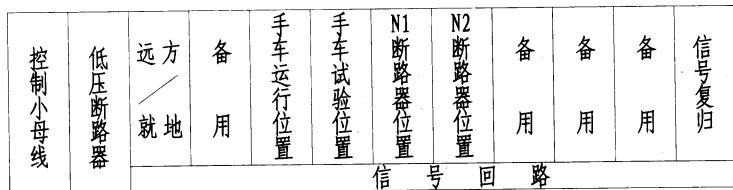 控制小母线
低压断路器
远方
/
就地
备用
手车运行位置
手车试验位置
N1断路器位置
N2断路器位置
备用
备用
备用
信号复归
信号回路